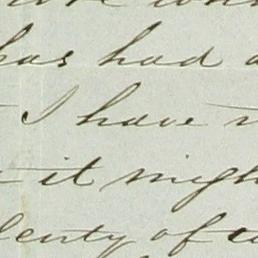 has had
I have
it might
plenty of